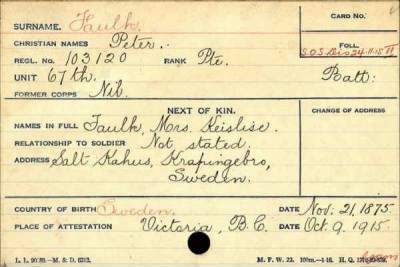 SURNAME. Faulk
CARD NO.
CHRISTIAN NAMES Peter.
REGL. No. 103120 RANK Pte.
FOLL.
S.O.S. Dis 24-11-15
UNIT 67th. Batt:
FORMER CORPS Nil.
NEXT OF KIN.
CHANGE OF ADDRESS
NAMES IN FULL Faulk, Mrs. Keislise.
RELATIONSHIP TO SOLDIER Not stated.
ADDRESS Salt Kahus, Krapingebro,
Sweden.
COUNTRY OF BIRTH Sweden. DATE Nov: 21, 1875.
PLACE OF ATTESTATION Victoria, B.C. DATE Oct. 9, 1915.
M. F. W. 22.